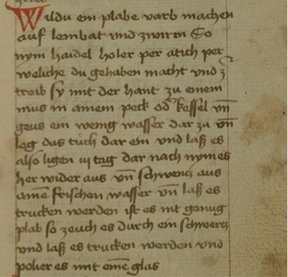 Wildu ein plabe varb machen
auf leinbat und zwirn So
nym haidel holer per atich per
weliche du gehaben macht und z
treib sy mit der hant zu einem
mus in ainem peck od kessel vn
geus ein wenig wasser dar zu vn
leg das tuch dar ein und laß es
also ligen iij tag dar nach nym es
her wider aus vn schwenz aus
aine frischen wasser vn laß es
trucken werden ist es nit genug
plab so zeuch es durch ein schwertz
und laß es trucken werden und
polier es mit eine glas